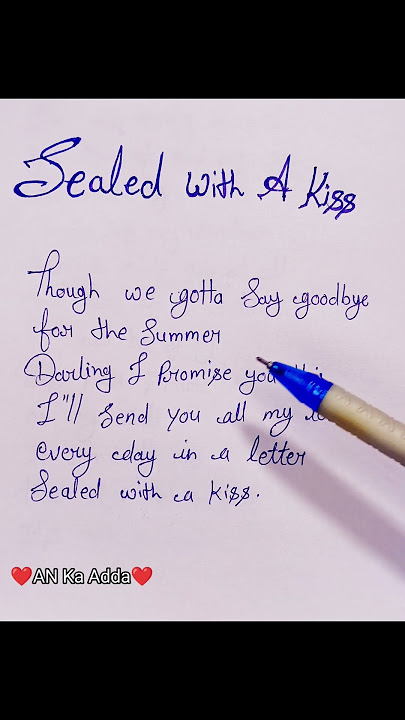 Sealed with A Kiss
Though we gotta Say goodbye
for the Summer
Darling I Promise you
I'll Send you all my
every day in a letter
Sealed with a kiss.
❤️AN Ka Adda❤️